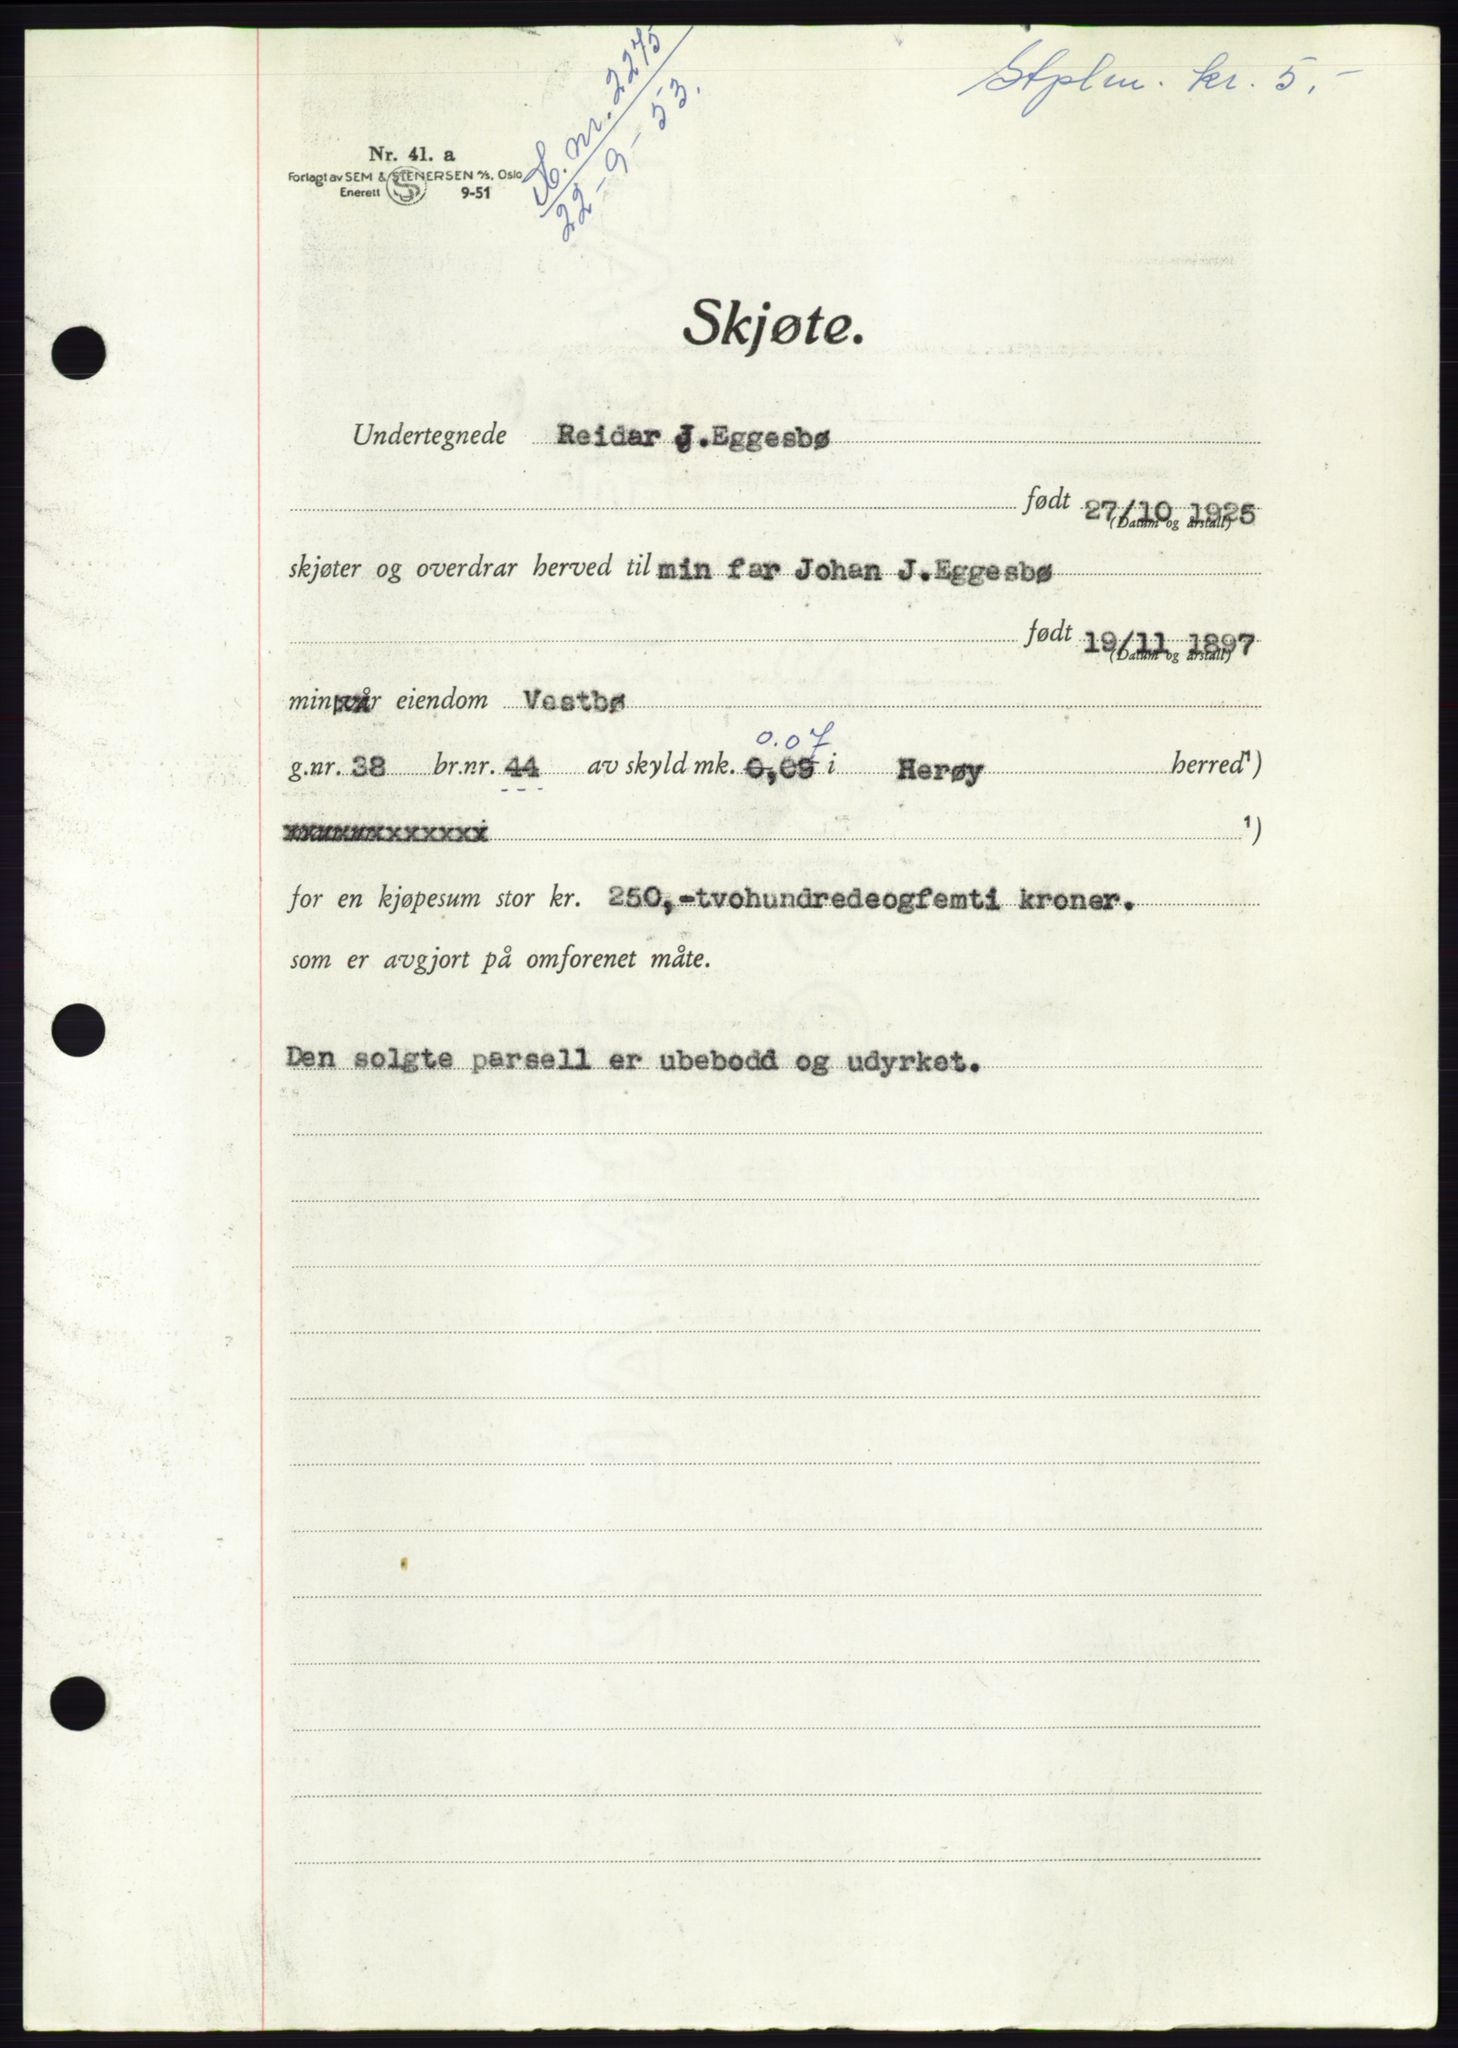 Stplm. kr. 5.-
D. nr. 2275
22-9-53.
Nr. 41. a
Forlagt av SEM & STENERSEN A/S, Oslo
Enerett S 9-51
Skjøte.
Undertegnede Reidar J.Eggesbø
født 27/10 1925
(Datum og årstall)
skjøter og overdrar herved til min far Johan J.Eggesbø
født 19/11 1897
(Datum og årstall)
min vår eiendom Vestbø
0.07
g.nr. 38 br.nr. 44 av skyld mk. 0,09 i Herøy herred¹)
xxxxxxxxxxxxx ¹)
for en kjøpesum stor kr. 250,-tvohundredeogfemti kroner.
som er avgjort på omforenet måte.
Den solgte parsell er ubebodd og udyrket.